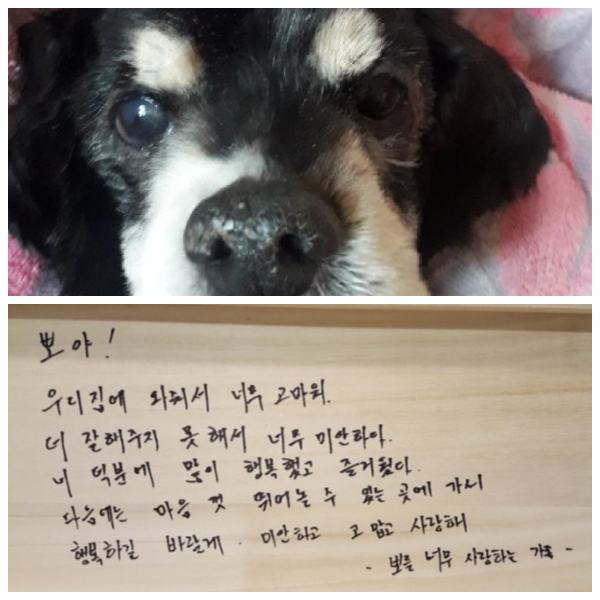 뽀야!
우리집에 와줘서 너무 고마워.
더 잘해주지 못해서 너무 미안하다.
니 덕분에 많이 행복했고 즐거웠다.
다음에는 마음 껏 뛰어놀 수 있는 곳에 가서
행복하길 바랄게. 미안하고 고맙고 사랑해
- 뽀를 너무 사랑하는 가족 -